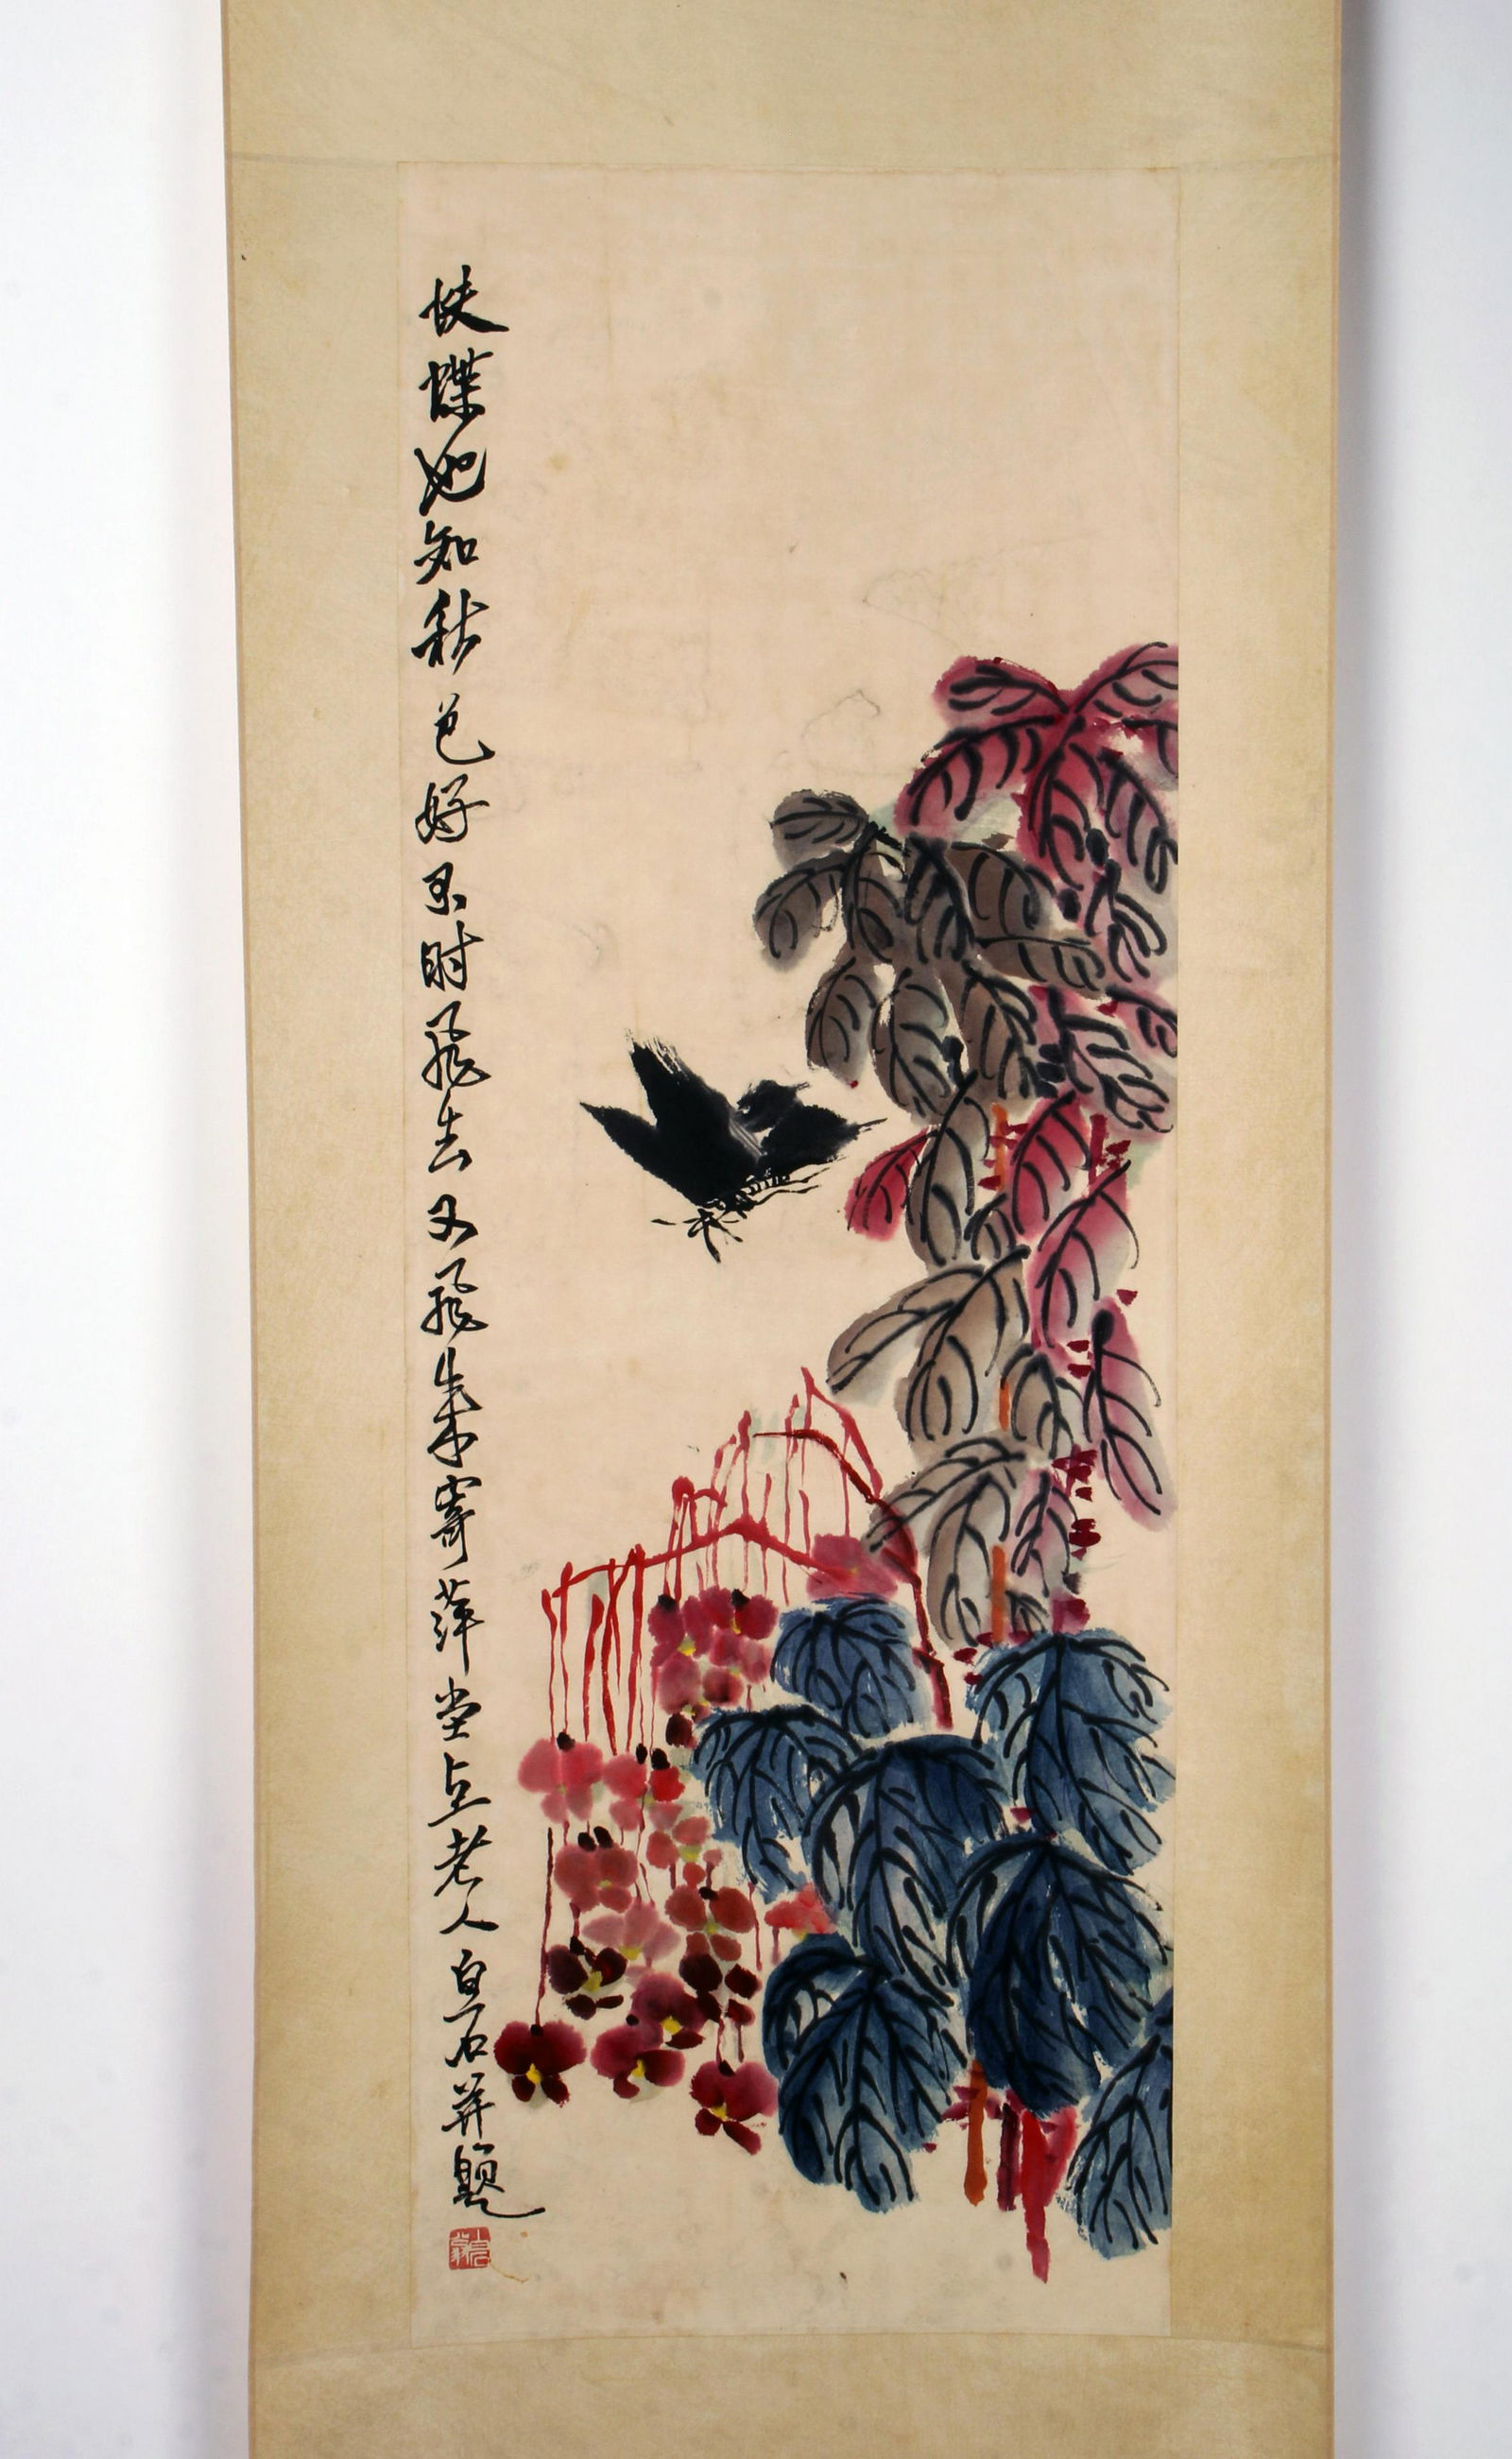 蛱蝶也知秋色好不时飛去又飛来寄萍堂上老人白石并題